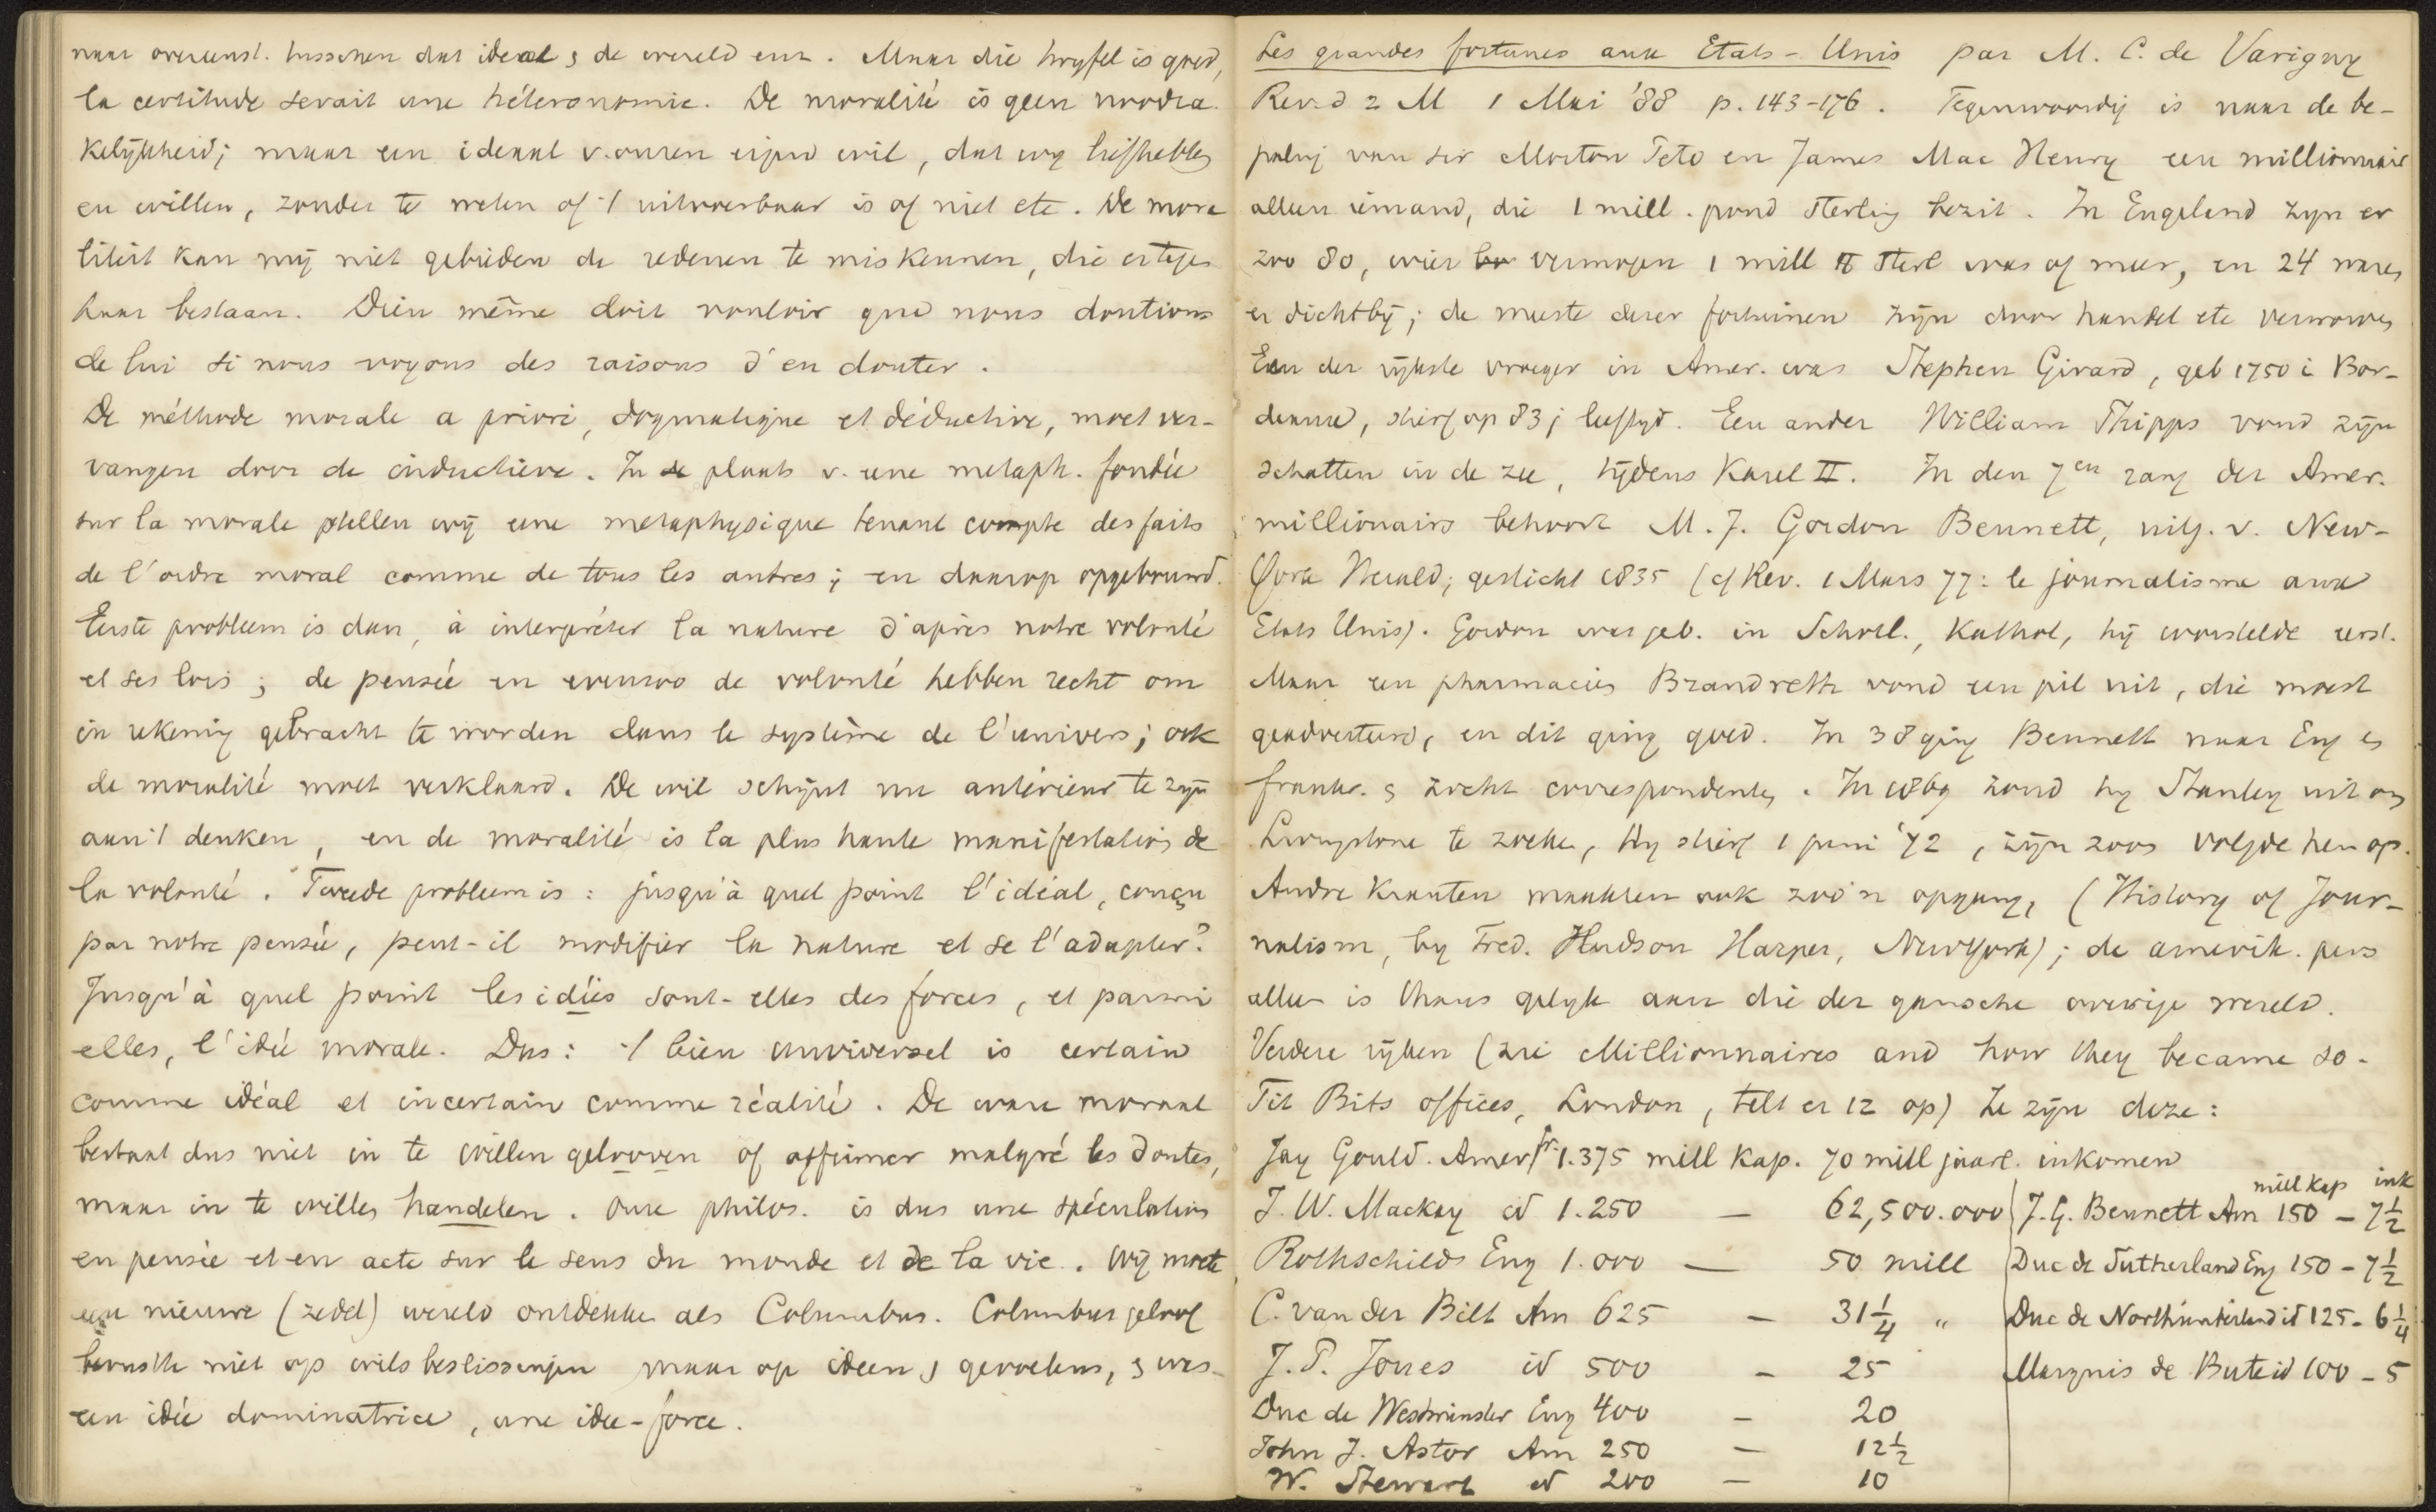 naar overeenst. tusschen dat ideaal & de wereld enz. Maar die twyfel is goed,
la certitude serait une hétéronomie. De moralité is geen noodza-
kelijkheid; maar een ideaal v. onzen eigen wil, dat wy liefhebben
en willen, zonder te weten of 't uitvoerbaar is of niet etc. De mora
liteit kan mij niet gebieden de redenen te miskennen, die er tegen
haar bestaan. Dieu même doit vouloir que nous doutions
de lui si nous voyons des raisons d'en douter.
De méthode morale a priori, dogmatique et déductive, moet ver-
vangen door de inductieve. In de plaats v. une metaph. fondée
sur la morale stellen wij une metaphysique tenant compte des faits
de l'ordre moral comme de tous les autres; en daarop opgebouwd.
Eerste probleem is dan, à interpréter la nature d'après notre volonté
et ses lois; de pensée en evenzoo de volonté hebben recht om
in rekening gebracht te worden dans le système de l'univers; ook
de moralité moet verklaard. De wil schijnt nu antérieur te zijn
aan 't denken, en de moralité is la plus haute manifestation de
la volonté. Tweede probleem is: jusqu'à quel point l'idéal, conçu
par notre pensée, peut-il modifier la nature et se l'adapter?
Jusqu'à quel point les idées sont-elles des forces, et parmi
elles, l'idée morale. Dus: 't bien universel is certain
comme idéal et incertain comme réalité. De ware moraal
bestaat dus niet in te willen gelooven of affirmer malgré les doutes,
maar in te willen handelen. Onze philos. is dus une spéculation
en pensée et en acte sur le sens du monde et de la vie. Wij moeten
een nieuwe (zedel) wereld ontdekken als Columbus. Columbus geloof
berustte niet op wilsbeslissingen maar op ideen & gevoelens, & was
een idée dominatrice, une idée-force.
Les grandes fortunes aux Etats-Unis par M. C. de Varigny
Rev. d 2 M 1 Mai '88 p. 143-176. Tegenwoordig is naar de be-
paling van sir Morton Peto en James Mac Henry een millionnair
alleen iemand, die 1 mill. pond sterling bezit. In Engeland zyn er
zoo 80, wier vermogen 1 mill ℔ sterl was of meer, en 24 waren
er dichtbij; de meeste dezer fortuinen zijn door handel etc verworven
Een der rijkste vroeger in Amer. was Stephen Girard, geb 1750 i Bor-
deaux, stierf op 83 j leeftyd. Een ander William Phipps vond zijn
schatten in de zee, tijdens Karel II. In den 7en rang der Amer.
millionairs behoort M. J. Gordon Bennett, uitg. v. New-
York Herald; gesticht 1835 (cf Rev. 1 Mars 77: le journalisme aux
Etats Unis). Gordon was geb. in Schotl., Kathol, hij worstelde eerst.
Maar een pharmacien Brandreth vond een pil uit, die moest
geadverteerd, en dit ging goed. In 38 ging Bennett naar Eng en
frankr. & zocht correspondenten. In 1869 zond hy Stanley uit om
Livingstone te zoeken, hy stierf 1 juni '72, zijn zoon volgde hem op.
Andre kranten maakten ook zoo'n opgang, (History of Jour-
nalism, by Fred. Hudson Harper, NewYork); de amerik. pers
alleen is thans gelijk aan die der gansche overige wereld.
Verdere rijken (zie Millionnaires and how they became so-
Tit Bits offices, London, telt er 12 op) Ze zijn deze:
Jay Gould. Amer fr 1.375 mill kap. 70 mill jaarl. inkomen
J. W. Mackay id 1.250 — 62,500.000
Rothschilds Eng 1.000 — 50 mill
C. van der Bilt Am 625 — 31 1/4 "
J. P. Jones id 500 — 25
Duc de Westminster Eng 400 — 20
John J. Astor Am 250 — 12 1/2
W. Stewart id 200 — 10
mill kap ink
J. G. Bennett Am 150 - 7 1/2
Duc de Sutherland Eng 150 - 7 1/2
Duc de Northumberland id 125 - 6 1/4
Marquis de Bute id 100 - 5